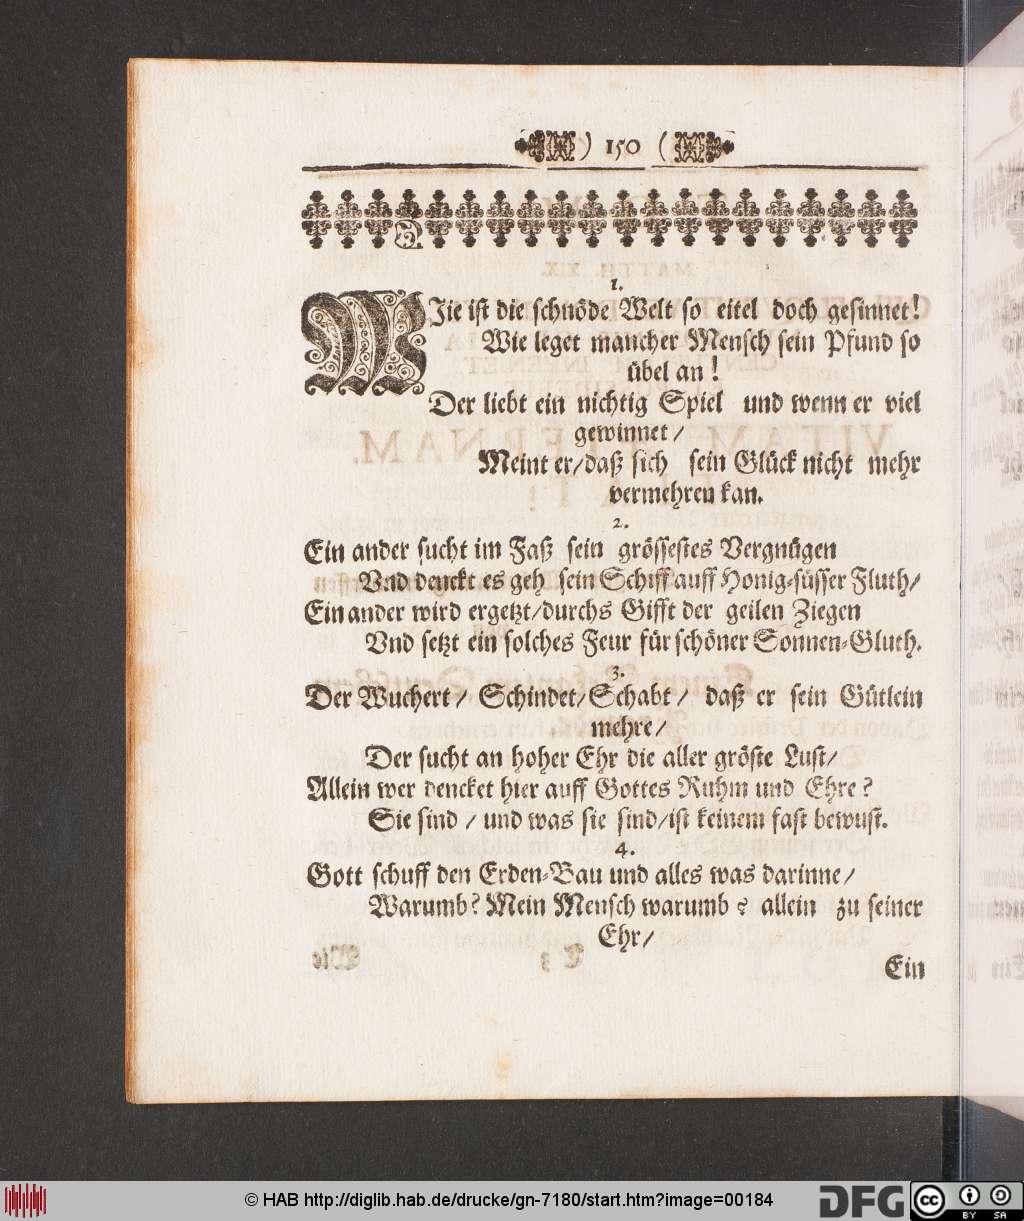 ) 150 (
1.
WJie ist die schnöde Welt so eitel doch gesinnet!
Wie leget mancher Mensch sein Pfund so
übel an!
Der liebt ein nichtig Spiel und wenn er viel
gewinnet/
Meint er/daß sich sein Glück nicht mehr
vermehren kan.
2.
Ein ander sucht im Faß sein grössestes Vergnügen
Vnd denckt es geh sein Schiff auff Honig-süsser Fluth/
Ein ander wird ergetzt/durchs Gifft der geilen Ziegen
Vnd setzt ein solches Feur für schöner Sonnen-Gluth.
3.
Der Wuchert/ Schindet/Schabt/ daß er sein Gütlein
mehre/
Der sucht an hoher Ehr die aller gröste Lust/
Allein wer dencket hier auff Gottes Ruhm und Ehre?
Sie sind/und was sie sind/ist keinem fast bewust.
4.
Gott schuff den Erden-Bau und alles was darinne/
Warumb? Mein Mensch warumb? allein zu seiner
Ehr/
Ein
© HAB http://diglib.hab.de/drucke/gn-7180/start.htm?image=00184
DFG
cc BY SA